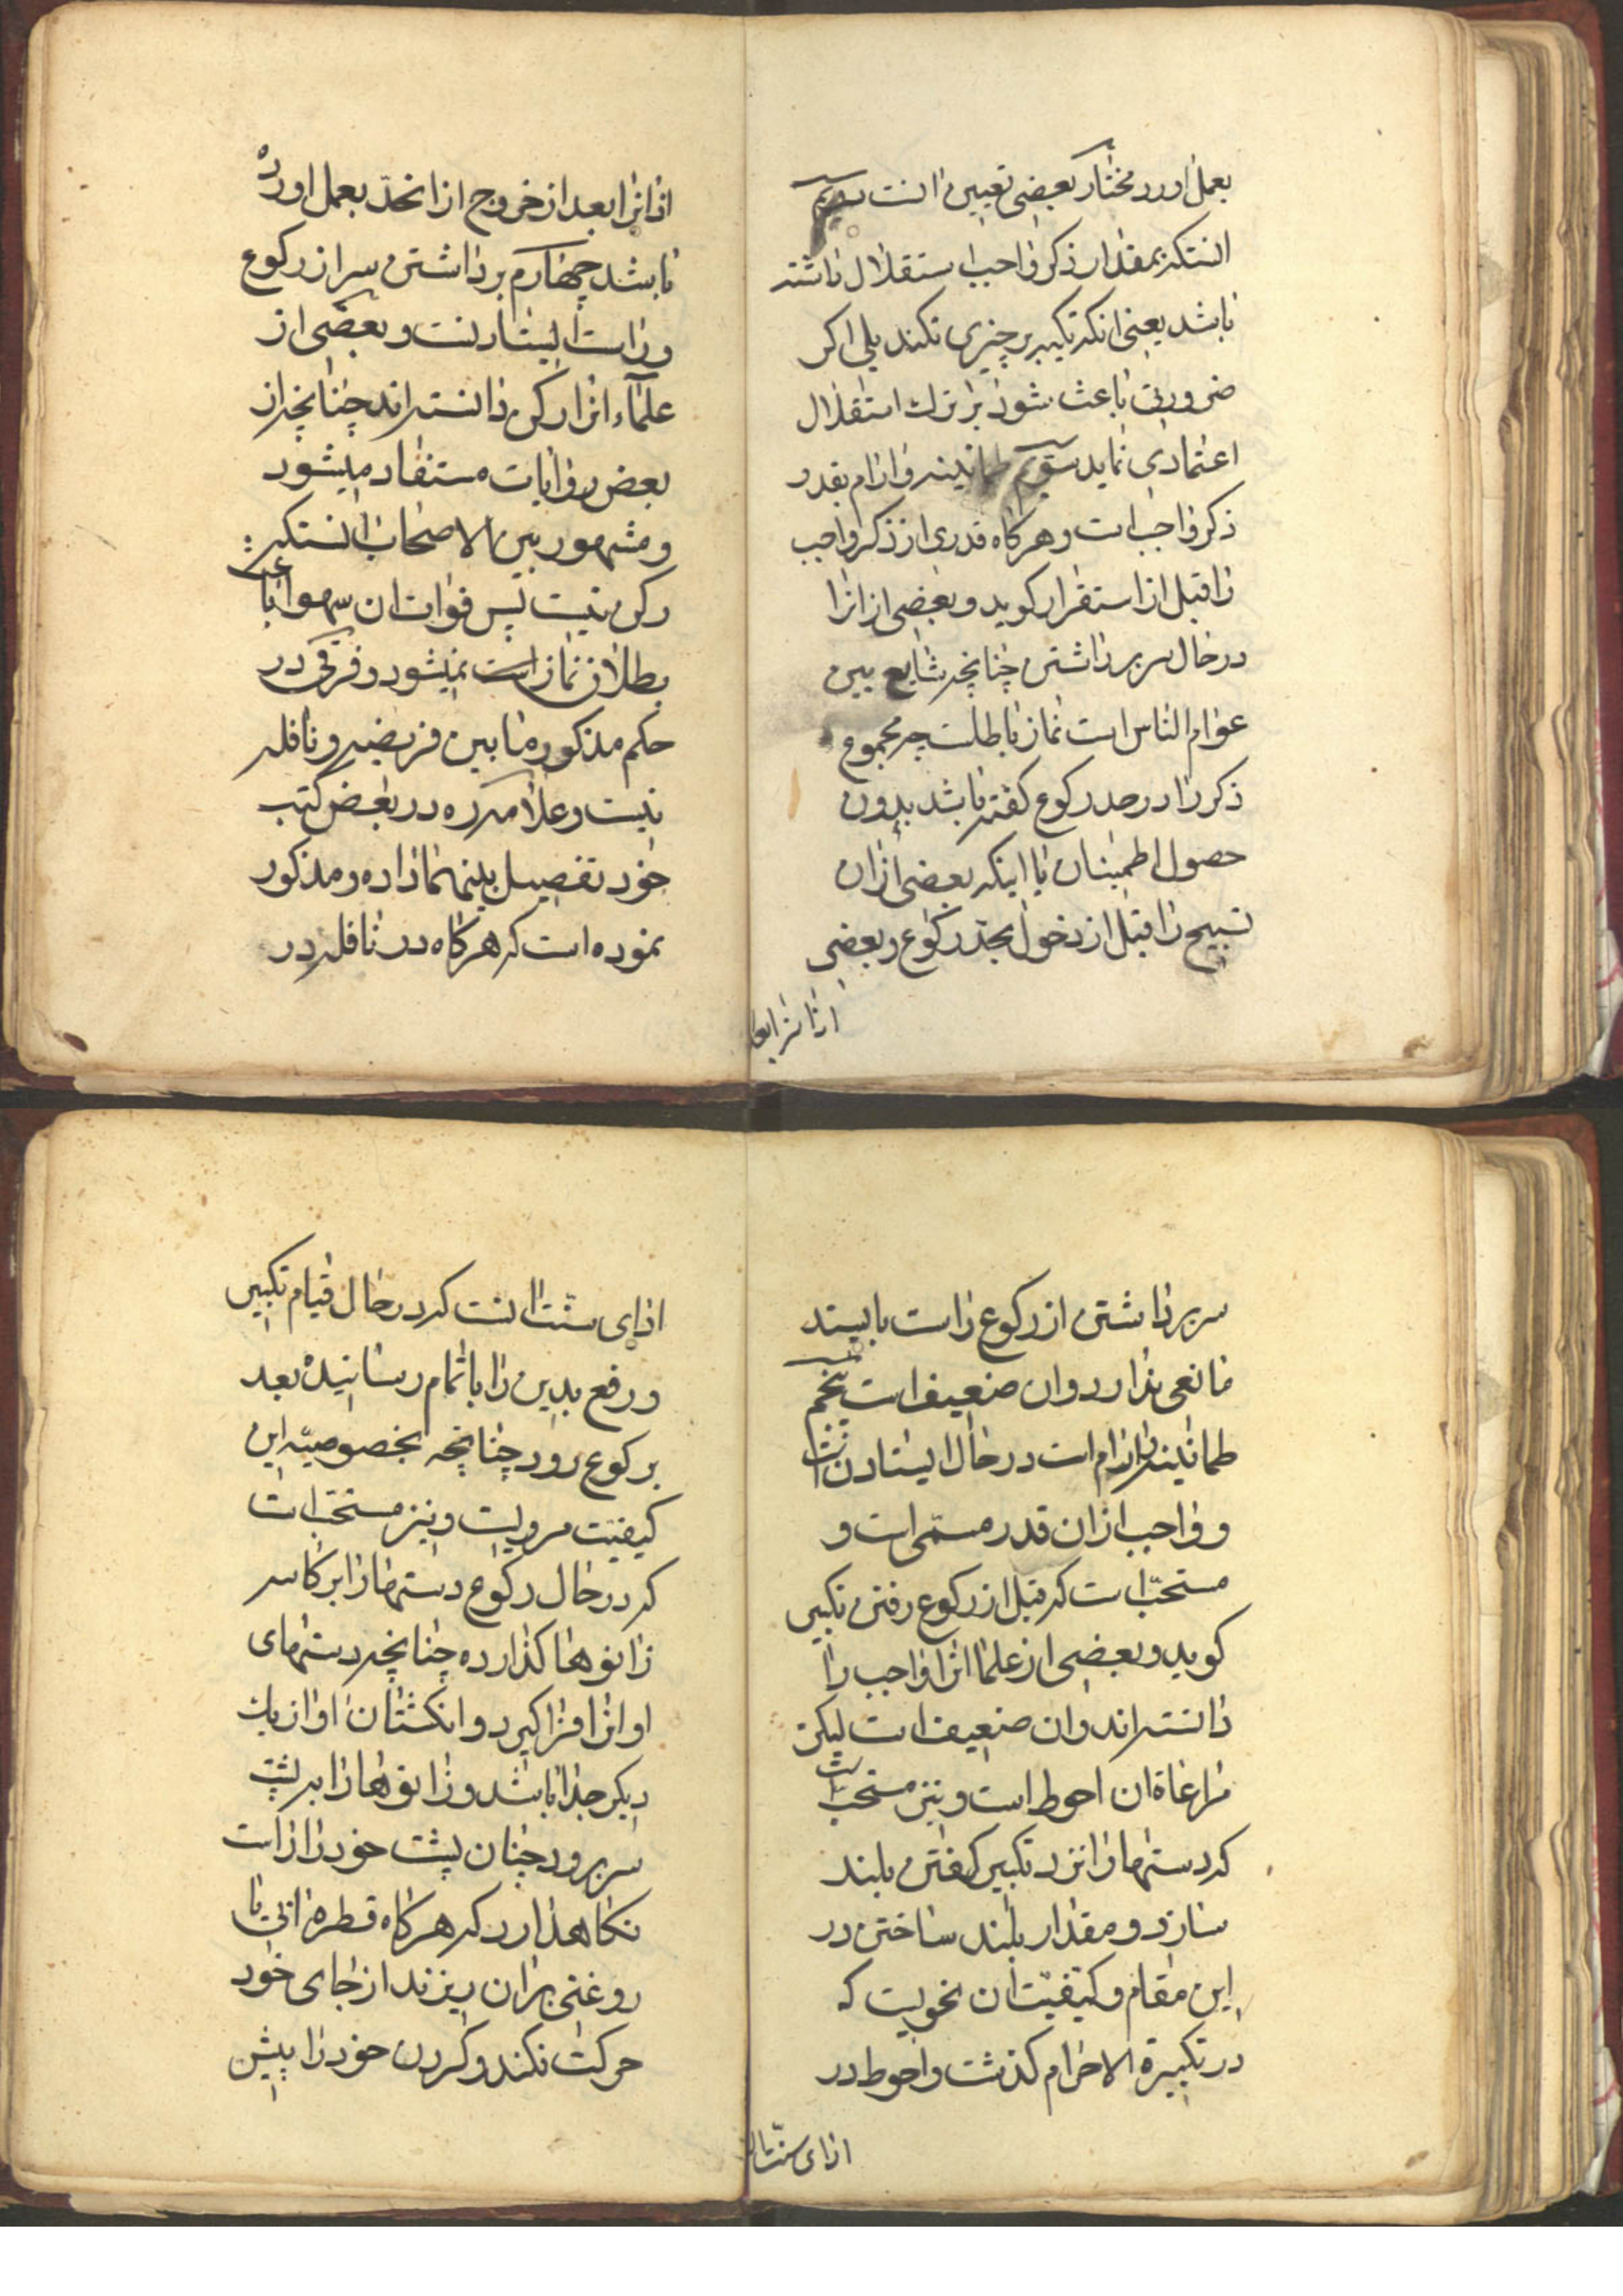 بعمل اورد مختار بعضی تعیین انست دویم
انستکه بمقدار ذکر واجب استقلال داشته
باشد یعنی انکه تکیه بر چیزی نکند بلی اکر
ضرورتی باعث شود بر ترك استقلال
اعتمادی نماید سویم طمانینه و ارام بقدر
ذکر واجب است و هرکاه قدری از ذکر واجب
را قبل از استقرار کوید و بعضی از انرا
در حال سر برداشتن چنانچه شایع بین
عوام الناس است نماز باطلست چه مجموع
ذکر را در حد رکوع کفته باشد بدون
حصول اطمینان یا اینکه بعضی از ان
تسبیح را قبل از دخول بحد رکوع و بعضی
از انرا بعد
از انرا بعد از خروج از انحدّ بعمل اورده
باشد چهارم برداشتن سر از رکوع
و راست ایستادنست و بعضی از
علماء انرا رکن دانسته اند چنانچه از
بعض روایات مستفاد میشود
و مشهور بین الاصحاب انستکه
رکن نیست پس فوات ان سهوا باعث
بطلان نماز است نمیشود و فرقی در
حکم مذکور ما بین فریضه و نافله
نیست و علامه ره در بعض کتب
خود تفصیل بینهما داده و مذکور
نموده است که هرکاه در نافله در
سر برداشتن از رکوع راست بایستد
مانعی ندارد و ان ضعیف است پنجم
طمانینه و ارام است در حال ایستادن است
و واجب از ان قدر مسمّی است و
مستحبّ است که قبل از رکوع رفتن تکبیر
کوید و بعضی از علما انرا واجب را
دانسته اند و ان ضعیف است لیکن
مراعاة ان احوط است و نیز مستحبّ است
که دستها را نزد تکبیر کفتن بلند
سازد و مقدار بلند ساختن در
این مقام و کیفیّت ان نحویست که
در تکبیرة الاحرام کذشت و احوط در
ادای سنّت ا
ادای سنّت انست که در حال قیام تکبیر
و رفع یدین را باتمام رسانیده بعد
برکوع رود چنانچه بخصوصیّه این
کیفیّت مرویست و نیز مستحبّ است
که در حال رکوع دستها را بر کاسه
زانوها کذارده چنانچه دستهای
او انرا فرا کیرد و انکشتان او از یك
دیکر جدا باشد و زانوها را به پشت
سر برد و چنان پشت خود را راست
نکاهدارد که هرکاه قطره ابی یا
روغنی بر ان ریزند از جای خود
حرکت نکند و کردن خود را پیش